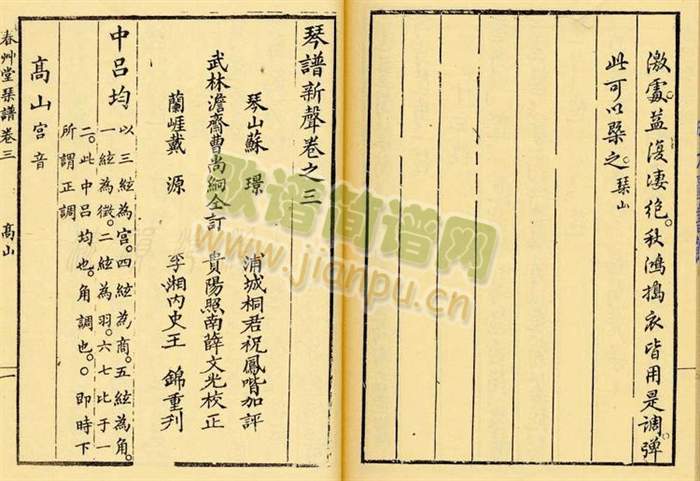 激處益淒絶秋鴻搗衣皆用是調彈
此可以槩之琴山
琴譜新聲卷之三
琴山蘇 璟 浦城桐君祝鳳喈加評
武林澹齋曹尚絅仝訂 貴陽照南薛文光校正
蘭崖戴 源 孚湘内史王 錦重刋
中呂均
以三絃為宮。四絃為商。五絃為角。
一絃為徵。二絃為羽。六七比于一
二。此中呂均也。角調也。○即時下
所謂正調
高山宮音
春艸堂琴譜卷三 高山 一
歌谱简谱网
www.jianpu.cn